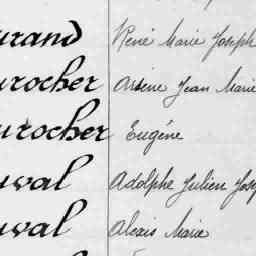 urand René Marie Joseph
urocher Arsène Jean Marie
urocher Eugène
uval Adolphe Julien Jos
uval Alexis Marie